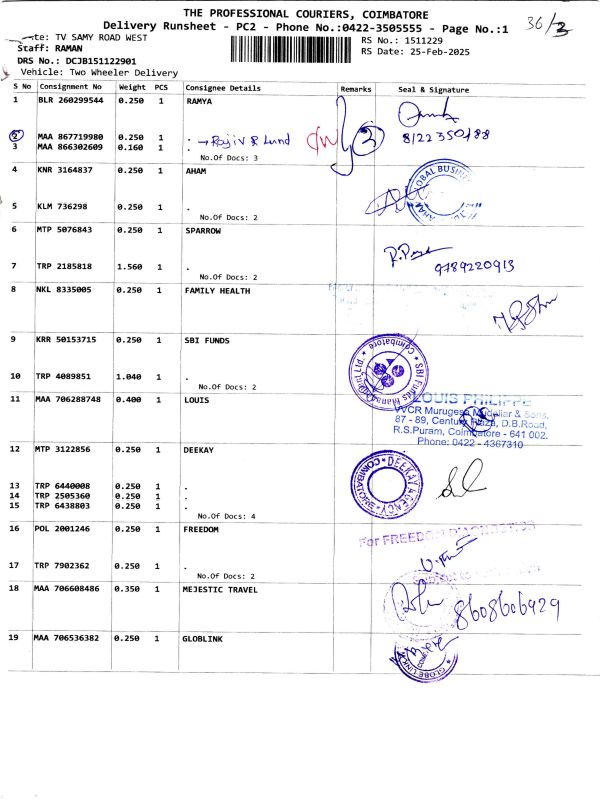 THE PROFESSIONAL COURIERS, COIMBATORE
36/3
Delivery Runsheet - PC2 - Phone No.:0422-3505555 - Page No.:1
te: TV SAMY ROAD WEST
RS No.: 1511229
Staff: RAMAN
RS Date: 25-Feb-2025
DRS No.: DCJB151122901
Vehicle: Two Wheeler Delivery
S No Consignment No Weight PCS Consignee Details Remarks Seal & Signature
1 BLR 260299544 0.250 1 RAMYA
2 MAA 867719980 0.250 1 . → Rajiv R Lund 3 8122350488
3 MAA 866302609 0.160 1 .
No.Of Docs: 3
4 KNR 3164837 0.250 1 AHAM
GLOBAL BUSIN
5 KLM 736298 0.250 1 .
No.Of Docs: 2
6 MTP 5076843 0.250 1 SPARROW
9789220913
7 TRP 2185818 1.560 1 .
No.Of Docs: 2
8 NKL 8335005 0.250 1 FAMILY HEALTH
9 KRR 50153715 0.250 1 SBI FUNDS
Coimbatore
SBI Funds Manag
10 TRP 4089851 1.040 1 .
No.Of Docs: 2
11 MAA 706288748 0.400 1 LOUIS
LOUIS PHILIPPE
VVCR Murugesa Mudaliar & Sons,
87 - 89, Century Plaza, D.B.Road,
R.S.Puram, Coimbatore - 641 002.
Phone: 0422 - 4367310
12 MTP 3122856 0.250 1 DEEKAY
DEEKAY AGENCY
COIMBATORE
13 TRP 6440008 0.250 1 .
14 TRP 2505360 0.250 1 .
15 TRP 6438803 0.250 1 .
No.Of Docs: 4
16 POL 2001246 0.250 1 FREEDOM
For FREEDOM DIAGNOSTICS
17 TRP 7902362 0.250 1 .
No.Of Docs: 2
18 MAA 706608486 0.350 1 MEJESTIC TRAVEL
8608606929
19 MAA 706536382 0.250 1 GLOBLINK
GLOBE LINK